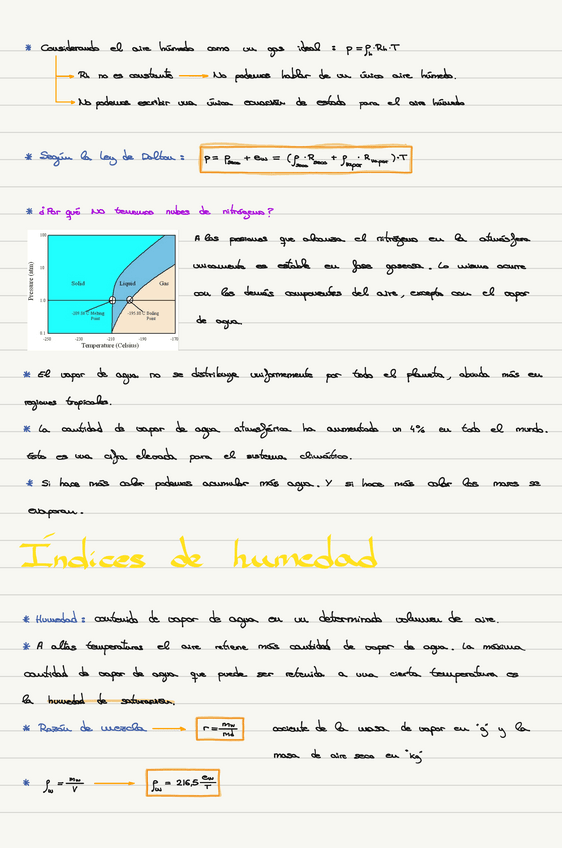 * Considerando el aire húmedo como un gas ideal : p = ρh · Rh · T
Rh no es constante → No podemos hablar de un único aire húmedo.
No podemos escribir una única ecuación de estado para el aire húmedo
* Según la Ley de Dalton : p = pseco + ew = (ρseco · Rseco + ρvapor · Rvapor) · T
* ¿Por qué no tenemos nubes de nitrógeno?
A las presiones que alcanza el nitrógeno en la atmósfera
unicamente es estable en fase gaseosa. Lo mismo ocurre
con los demás componentes del aire, excepto con el vapor
de agua.
Pressure (atm)
100
10
1.0
0.1
Solid
Liquid
Gas
Melting
Point
Boiling
Point
-250 -230 -210 -190 -170
Temperature (Celsius)
* El vapor de agua no se distribuye uniformemente por todo el planeta, abunda más en
regiones tropicales.
* La cantidad de vapor de agua atmosférica ha aumentado un 4% en todo el mundo.
Esto es una cifra elevada para el sistema climático.
* Si hace más calor podemos acumular más agua. Y si hace más calor los mares se
evaporan.
Índices de humedad
* Humedad : contenido de vapor de agua en un determinado volumen de aire.
* A altas temperaturas el aire retiene más cantidad de vapor de agua. La máxima
cantidad de vapor de agua que puede ser retenida a una cierta temperatura es
la humedad de saturación.
* Razón de mezcla → r = mw/md cociente de la masa de vapor en "g" y la
masa de aire seco en "kg"
* ρw = mw/V → ρw = 216,5 ew/T